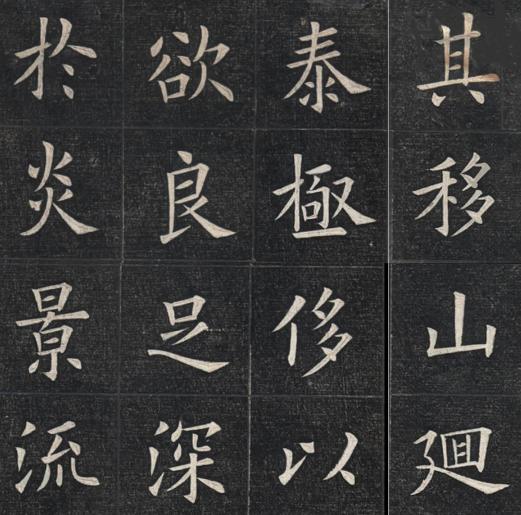 其移山廻
泰極侈以
欲良足深
於炎景流